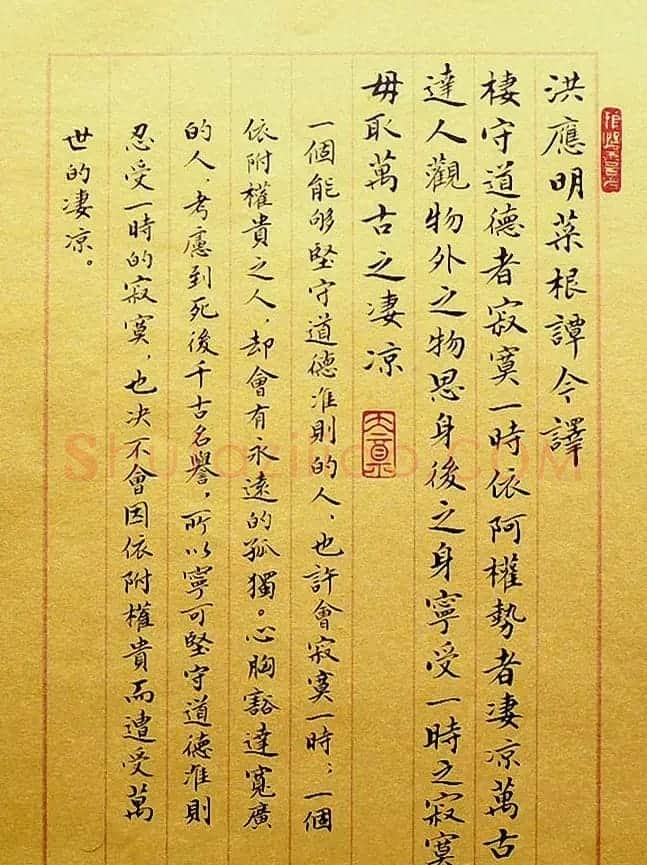 洪應明菜根譚今譯
棲守道德者寂寞一時依阿權勢者凄凉萬古
達人觀物外之物思身後之身寧受一時之寂寞
毋取萬古之凄凉
一個能够堅守道德准則的人，也許會寂寞一時；一個
依附權貴之人，却會有永遠的孤獨。心胸豁達寬廣
的人，考慮到死後千古名譽，所以寧可堅守道德准則
忍受一時的寂寞，也决不會因依附權貴而遭受萬
世的凄凉。